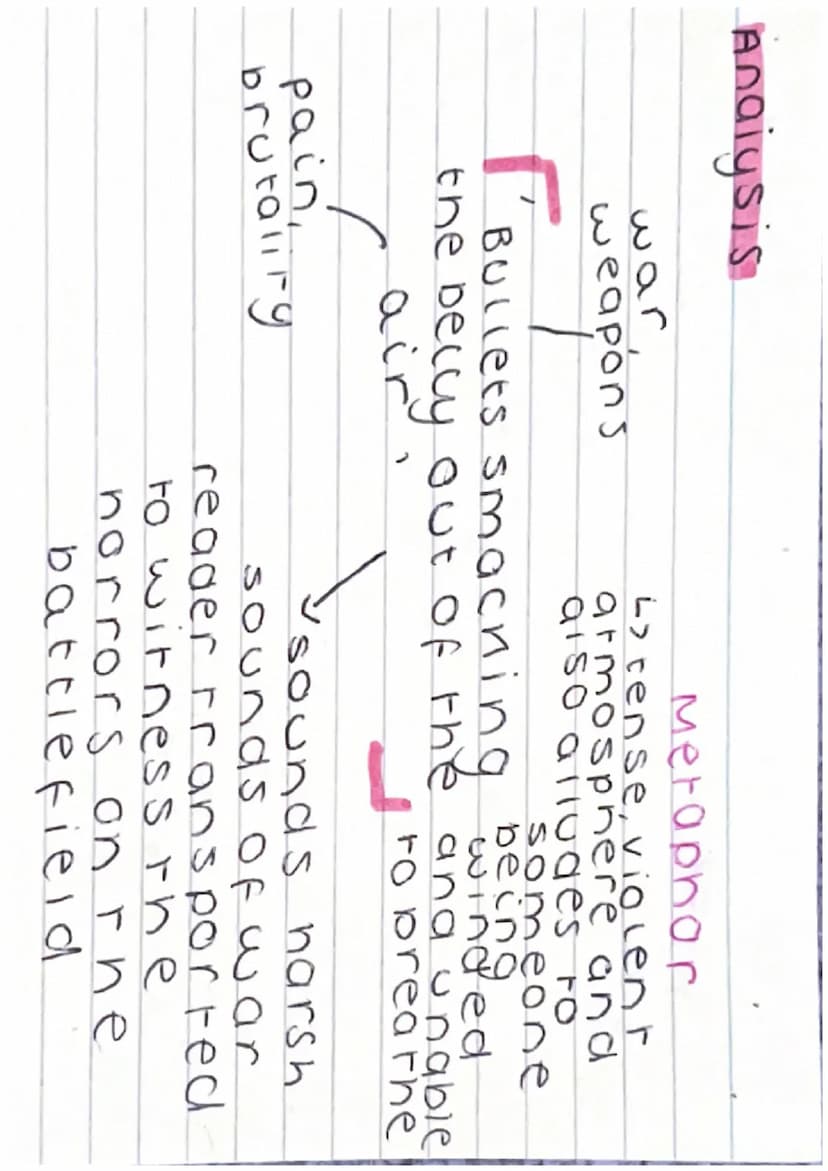 Analysis
war
weapons
Metaphor
↳ tense, violent
atmosphere and
also alludes to
someone
being
winded
and unable
to breathe
' Bullets smacking
the belly out of the
air '
pain,
brutality
sounds harsh
sounds of war
reader transported
to witness the
horrors on the
battlefield